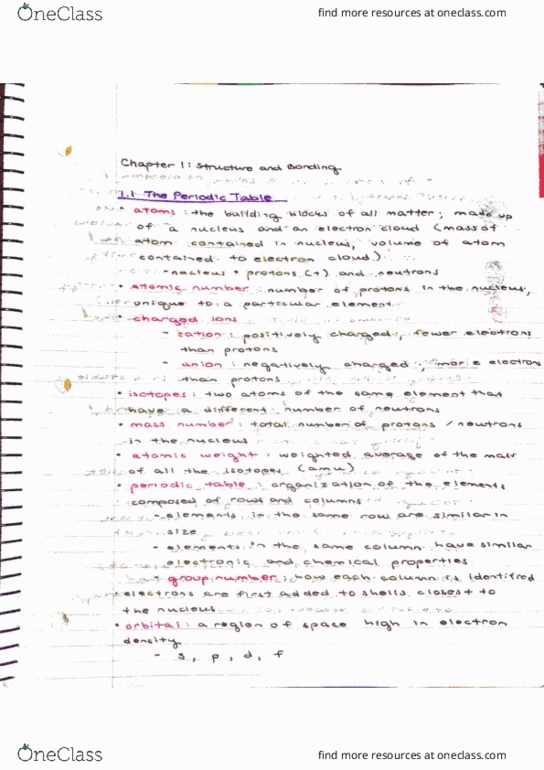 OneClass
find more resources at oneclass.com
Chapter 1: Structure and Bonding
1.1 The Periodic Table
• atoms: the building blocks of all matter; made up
of a nucleus and an electron cloud (mass of
atom contained in nucleus, volume of atom
contained to electron cloud)
- nucleus = protons (+) and neutrons
• atomic number: number of protons in the nucleus,
unique to a particular element
• charged ions
- cation: positively charged, fewer electrons
than protons
- anion: negatively charged; more electrons
than protons
• isotopes: two atoms of the same element that
have a different number of neutrons
• mass number: total number of protons / neutrons
in the nucleus
• atomic weight: weighted average of the mass
of all the isotopes (amu)
• periodic table: organization of the elements
composed of rows and columns
- elements in the same row are similar in
size
- elements in the same column have similar
electronic and chemical properties
group number: how each column is identified
• electrons are first added to shells closest to
the nucleus
• orbital: a region of space high in electron
density
- s, p, d, f
OneClass
find more resources at oneclass.com